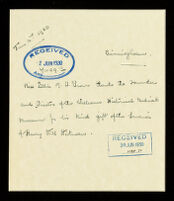 June 11th 1930
RECEIVED
12 JUN 1930
Birmingham.
Miss Ellen M. A. thanks the Founder
and Director of the Wellcome Historical Medical
Museum for his kind gift of the Souvenir
of Henry Hill Hickman.
RECEIVED
30 JUN 1930